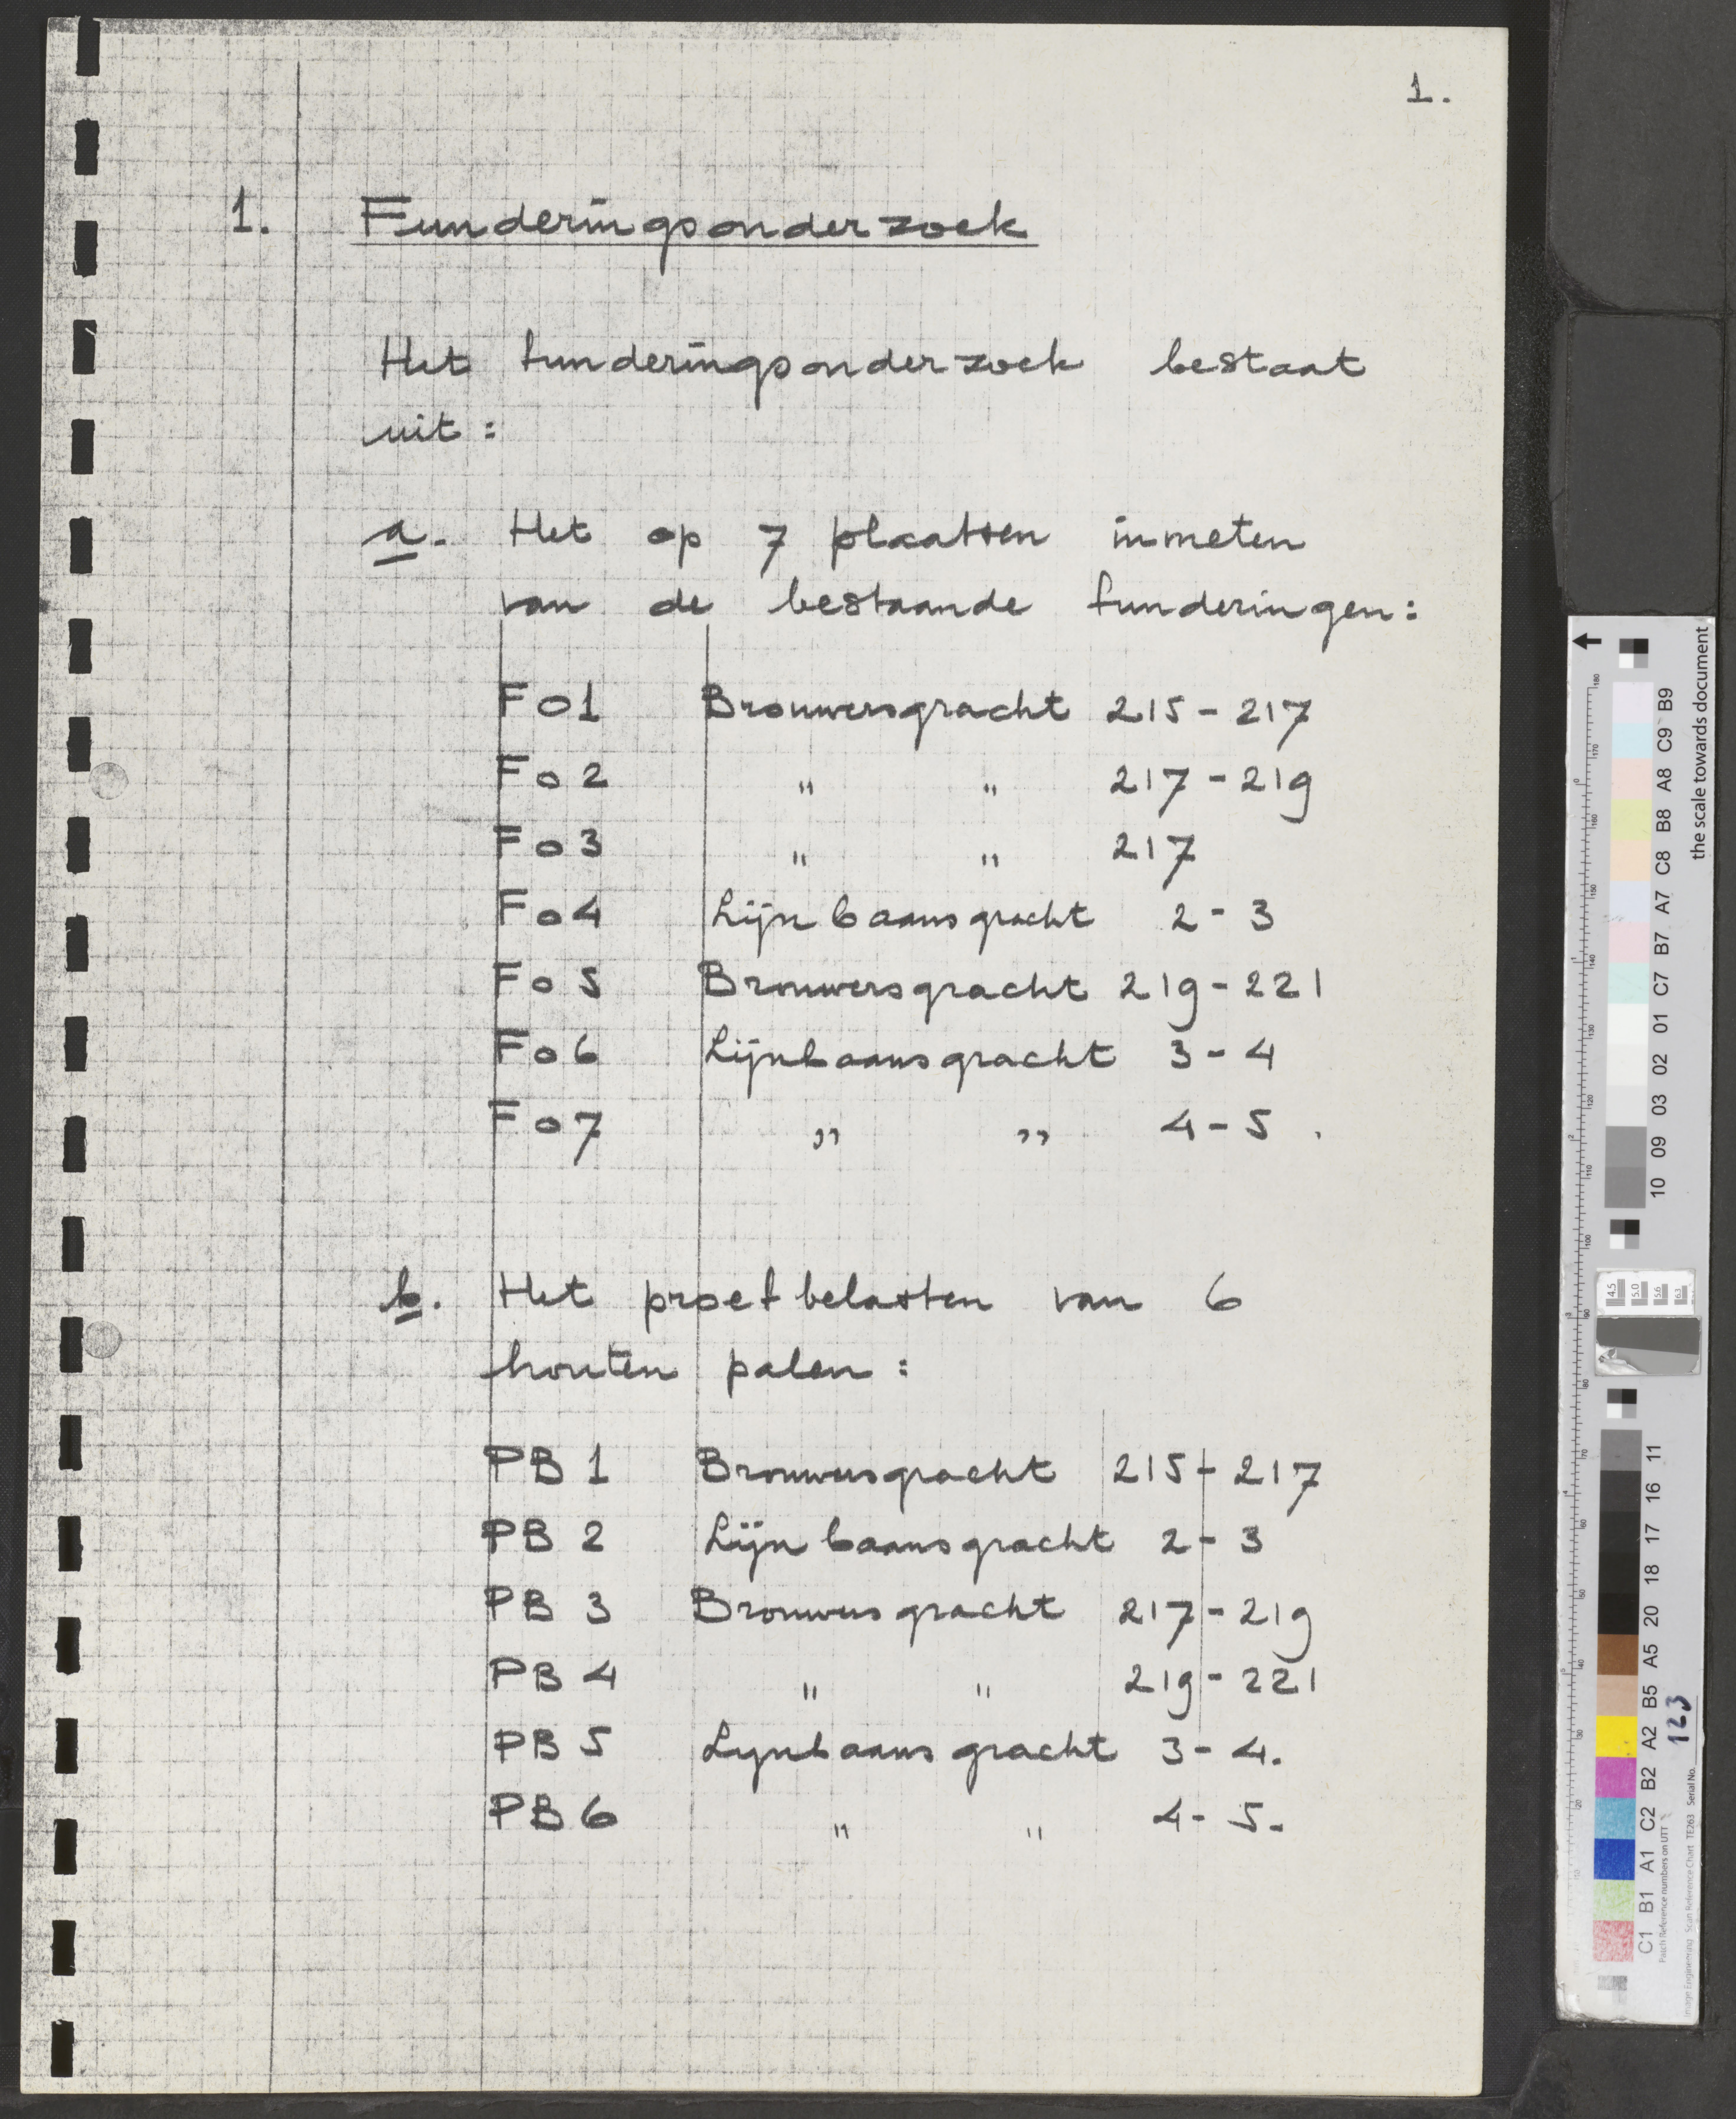 1.
1. Funderingsonderzoek
Het funderingsonderzoek bestaat
uit:
a. Het op 7 plaatsen inmeten
van de bestaande funderingen:
Fo1 Brouwersgracht 215-217
Fo2 " " 217-219
Fo3 " " 217
Fo4 Lijnbaansgracht 2-3
Fo5 Brouwersgracht 219-221
Fo6 Lijnbaansgracht 3-4
Fo7 " " 4-5.
b. Het proefbelasten van 6
houten palen:
PB 1 Brouwersgracht 215-217
PB 2 Lijnbaansgracht 2-3
PB 3 Brouwersgracht 217-219
PB 4 " " 219-221
PB 5 Lynbaansgracht 3-4.
PB 6 " " 4-5.
the scale towards document
C1 B1 A1 C2 B2 A2 B5 A5 20 18 17 16 11 10 09 03 02 01 C7 B7 A7 C8 B8 A8 C9 B9
Patch Reference numbers on UTT
Image Engineering Scan Reference Chart TE263 Serial No. 123